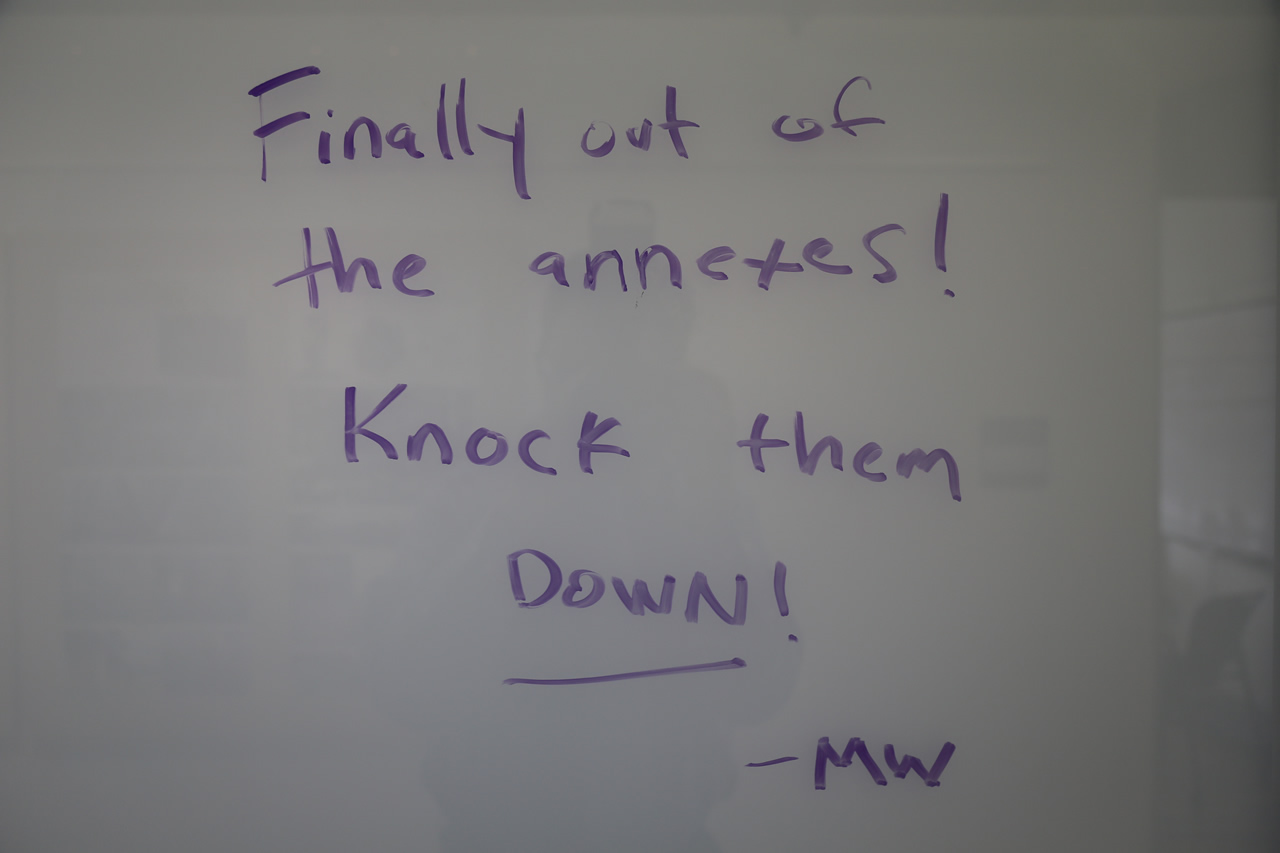 Finally out of
the annexes!
Knock them
DOWN!
-MW